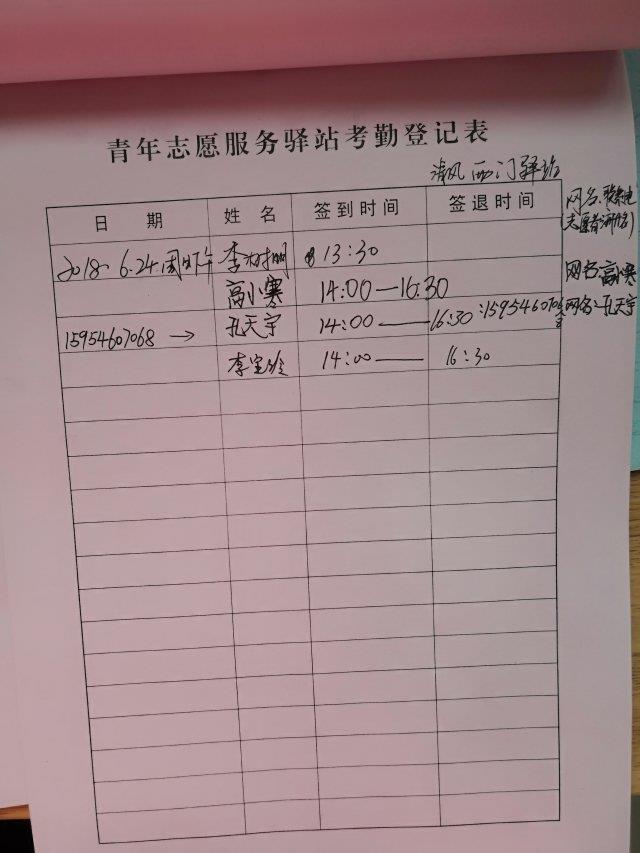 青年志愿服务驿站考勤登记表
清风西门驿站
日 期 姓 名 签到时间 签退时间
网名:
2018.6.24.周 午 李 明 13:30
高小寒 14:00—16:30 网名:高小寒
15954607068 → 孔天宇 14:00 —— 16:30 网名:孔天宇
李宝玲 14:00 —— 16:30